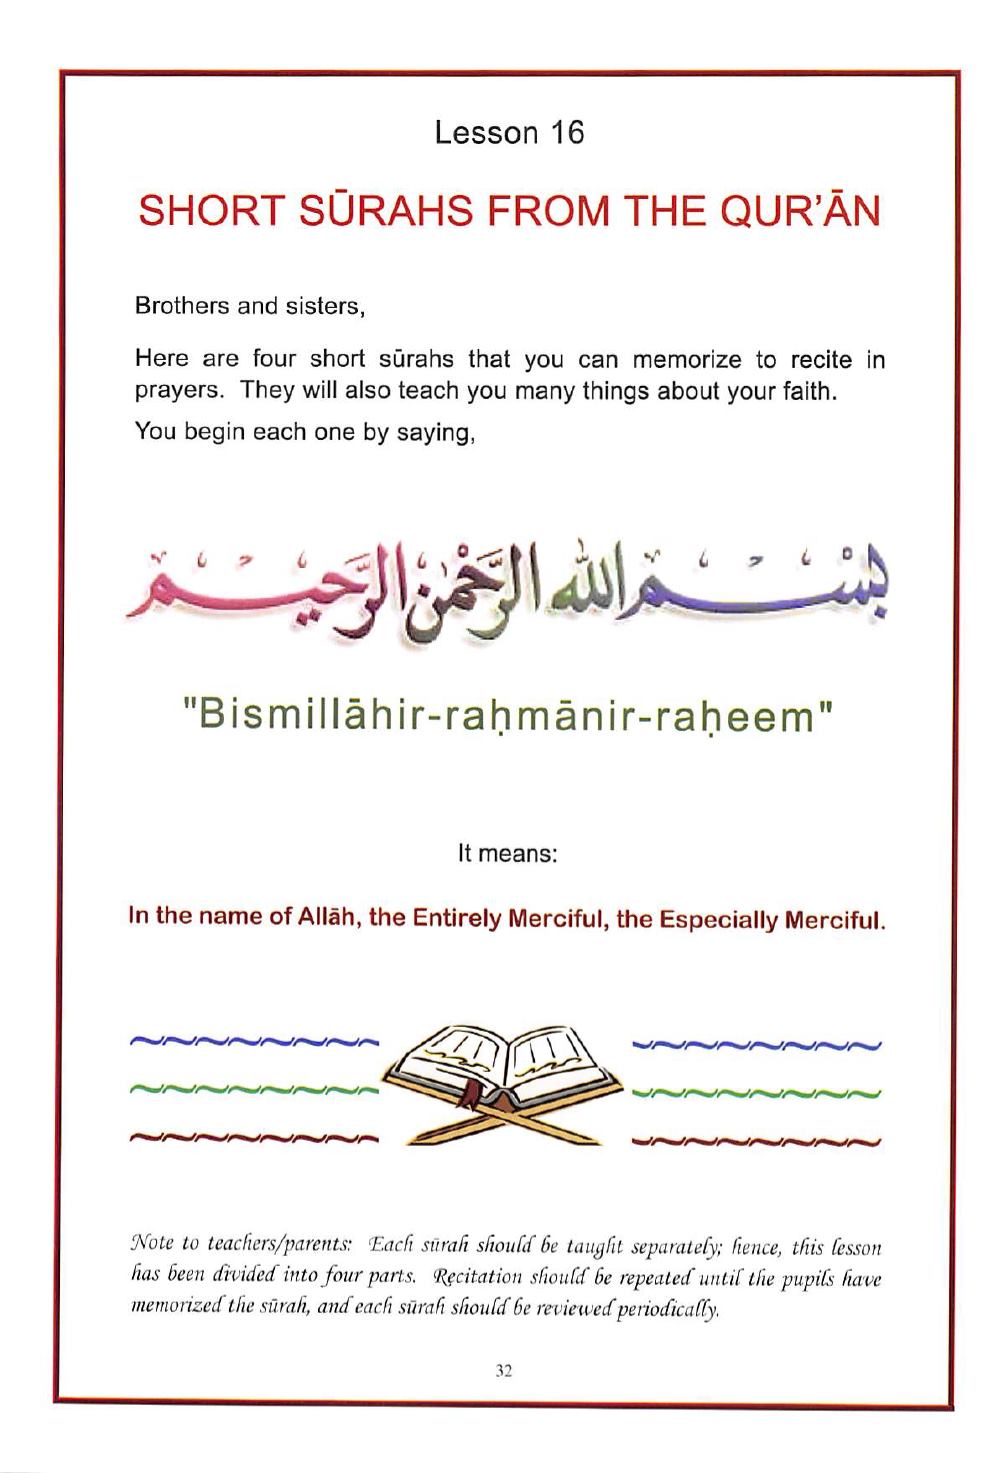 Lesson 16
SHORT SŪRAHS FROM THE QUR’ĀN
Brothers and sisters,
Here are four short sūrahs that you can memorize to recite in
prayers. They will also teach you many things about your faith.
You begin each one by saying,
بِسْمِ اللهِ الرَّحْمٰنِ الرَّحِيمِ
"Bismillāhir-raḥmānir-raḥeem"
It means:
In the name of Allāh, the Entirely Merciful, the Especially Merciful.
Note to teachers/parents: Each sūrah should be taught separately; hence, this lesson
has been divided into four parts. Recitation should be repeated until the pupils have
memorized the sūrah, and each sūrah should be reviewed periodically.
32